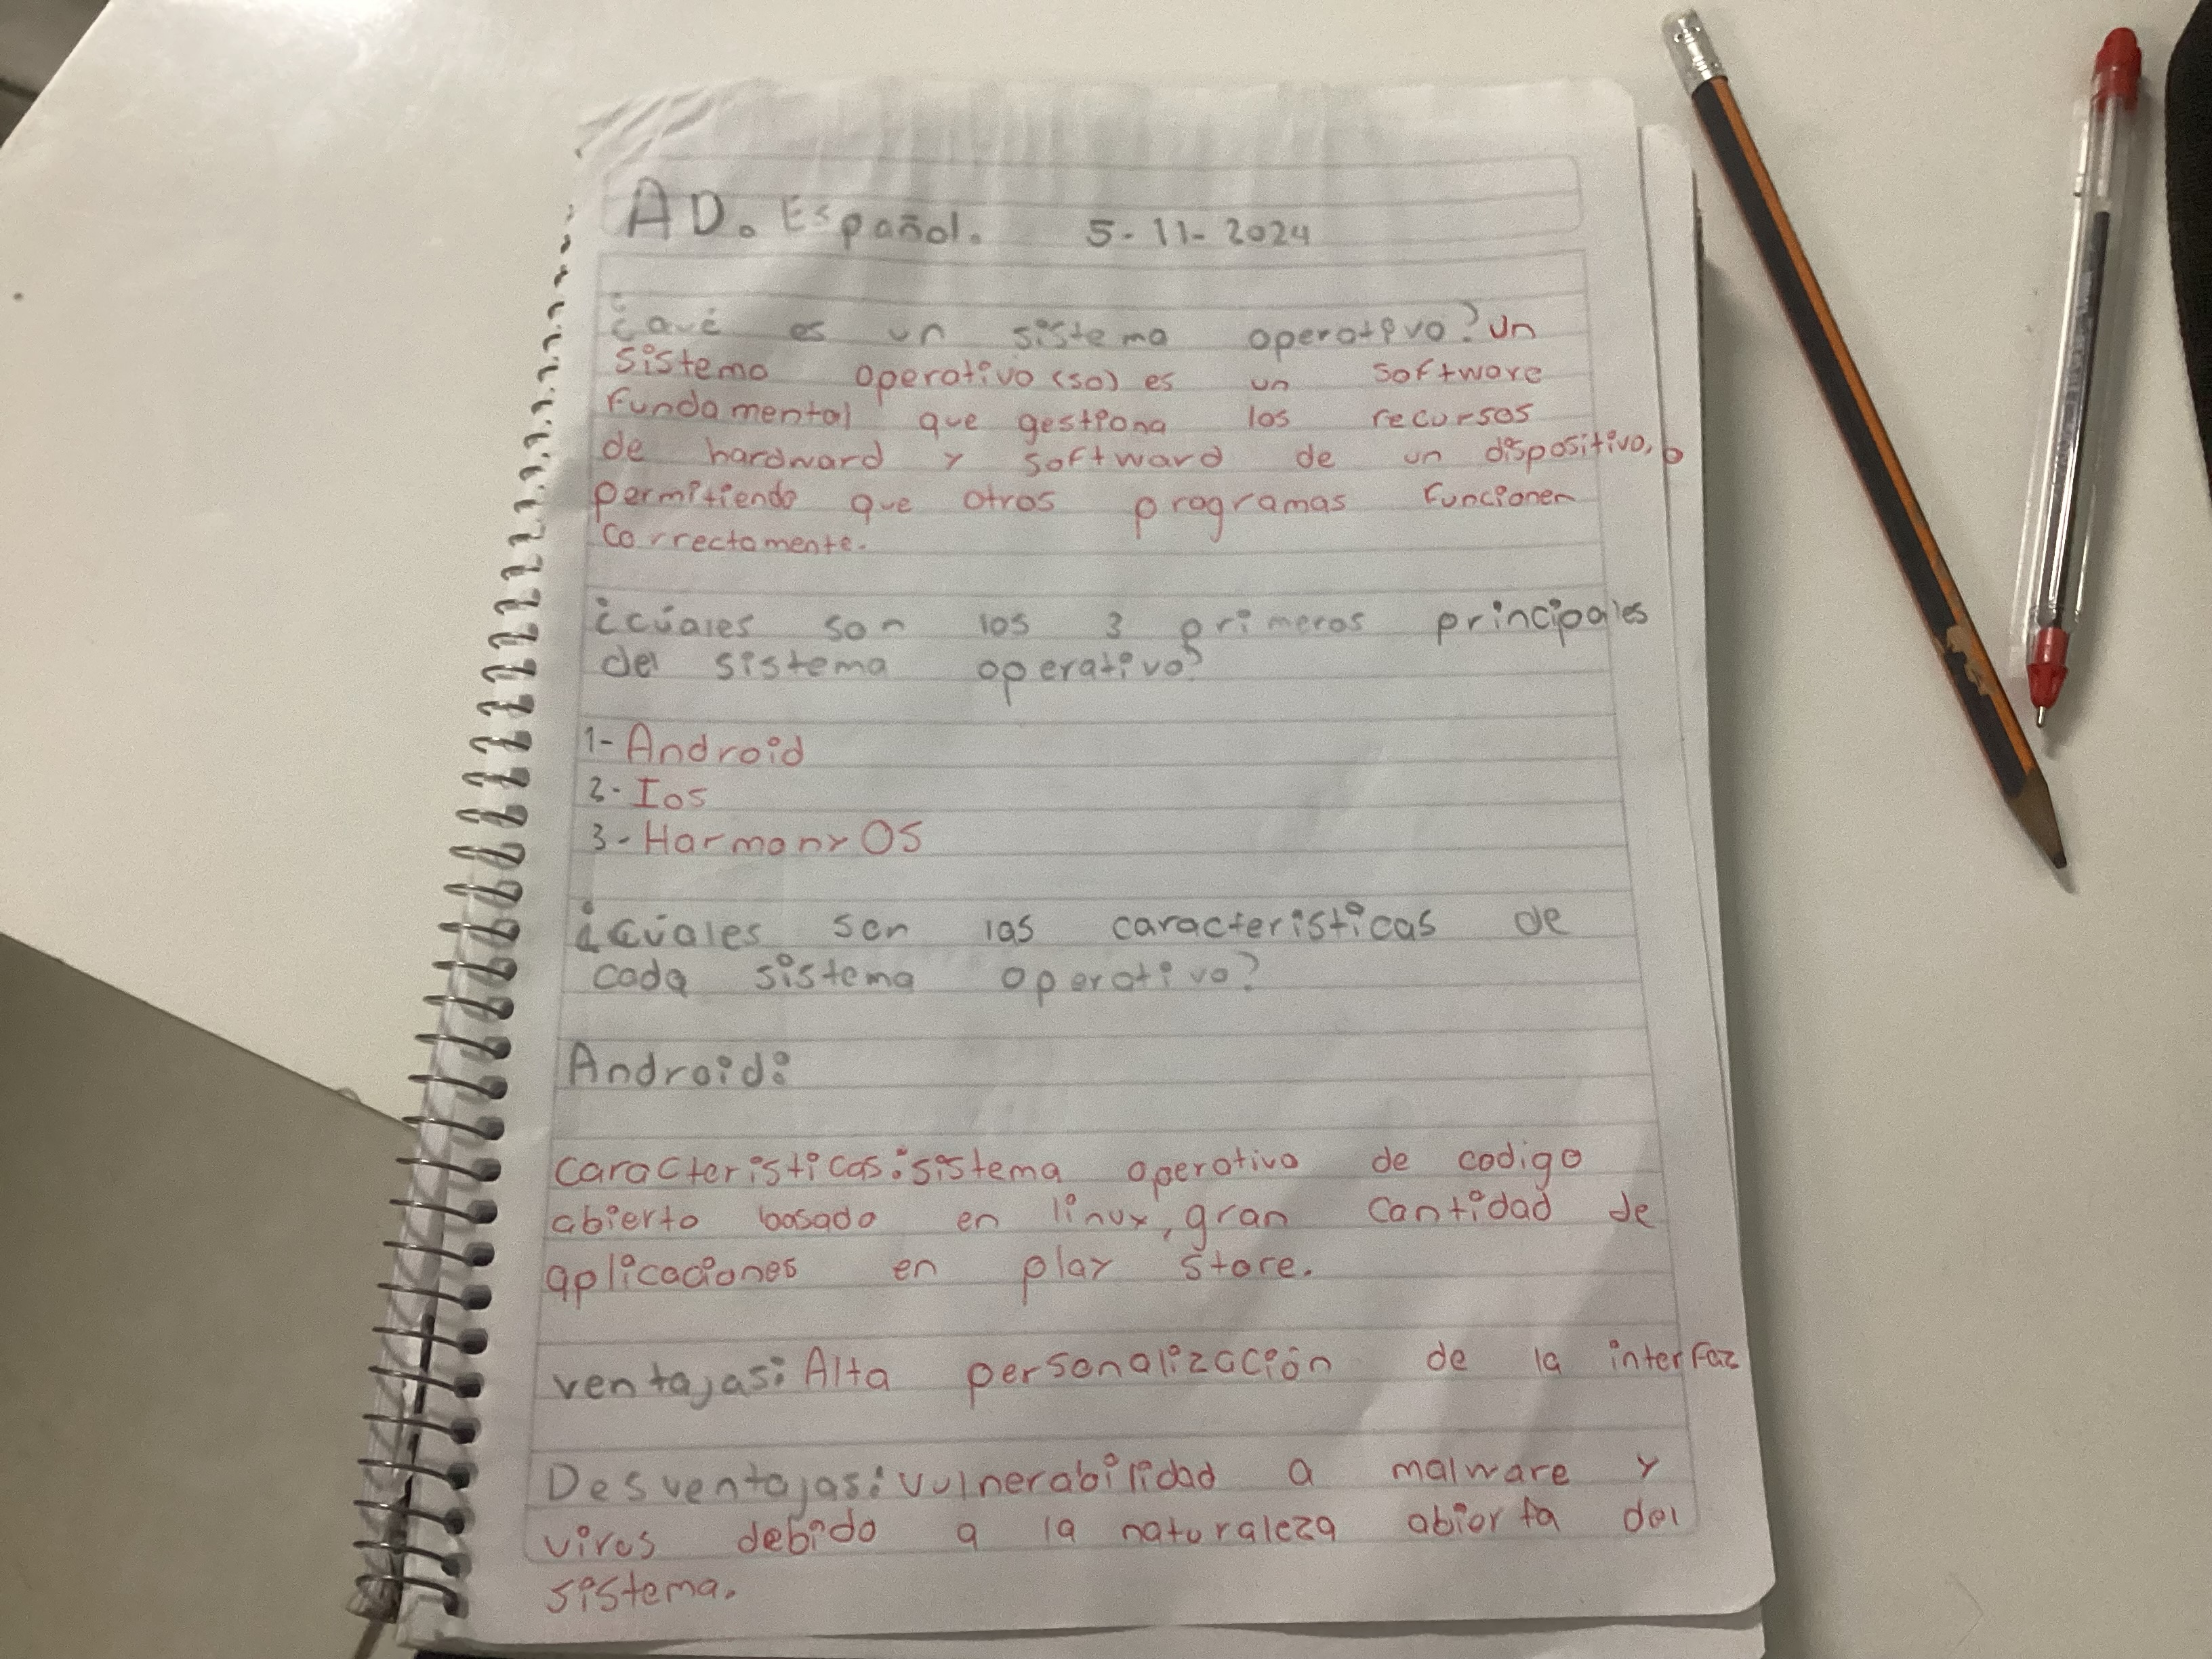 AD. Español. 5-11-2024
¿Qué es un sistema operativo? Un
sistema operativo (so) es un software
fundamental que gestiona los recursos
de hardward y softward de un dispositivo,
permitiendo que otros programas funcionen
correctamente.
¿cúales son los 3 primeros principales
del sistema operativo?
1- Android
2- Ios
3- Harmony OS
¿cúales son las caracteristicas de
cada sistema operativo?
Android:
caracteristicas: sistema operativo de codigo
abierto basado en linux, gran cantidad de
aplicaciones en play store.
ventajas: Alta personalización de la interfaz
Desventajas: vulnerabilidad a malware y
virus debido a la naturaleza abierta del
sistema.